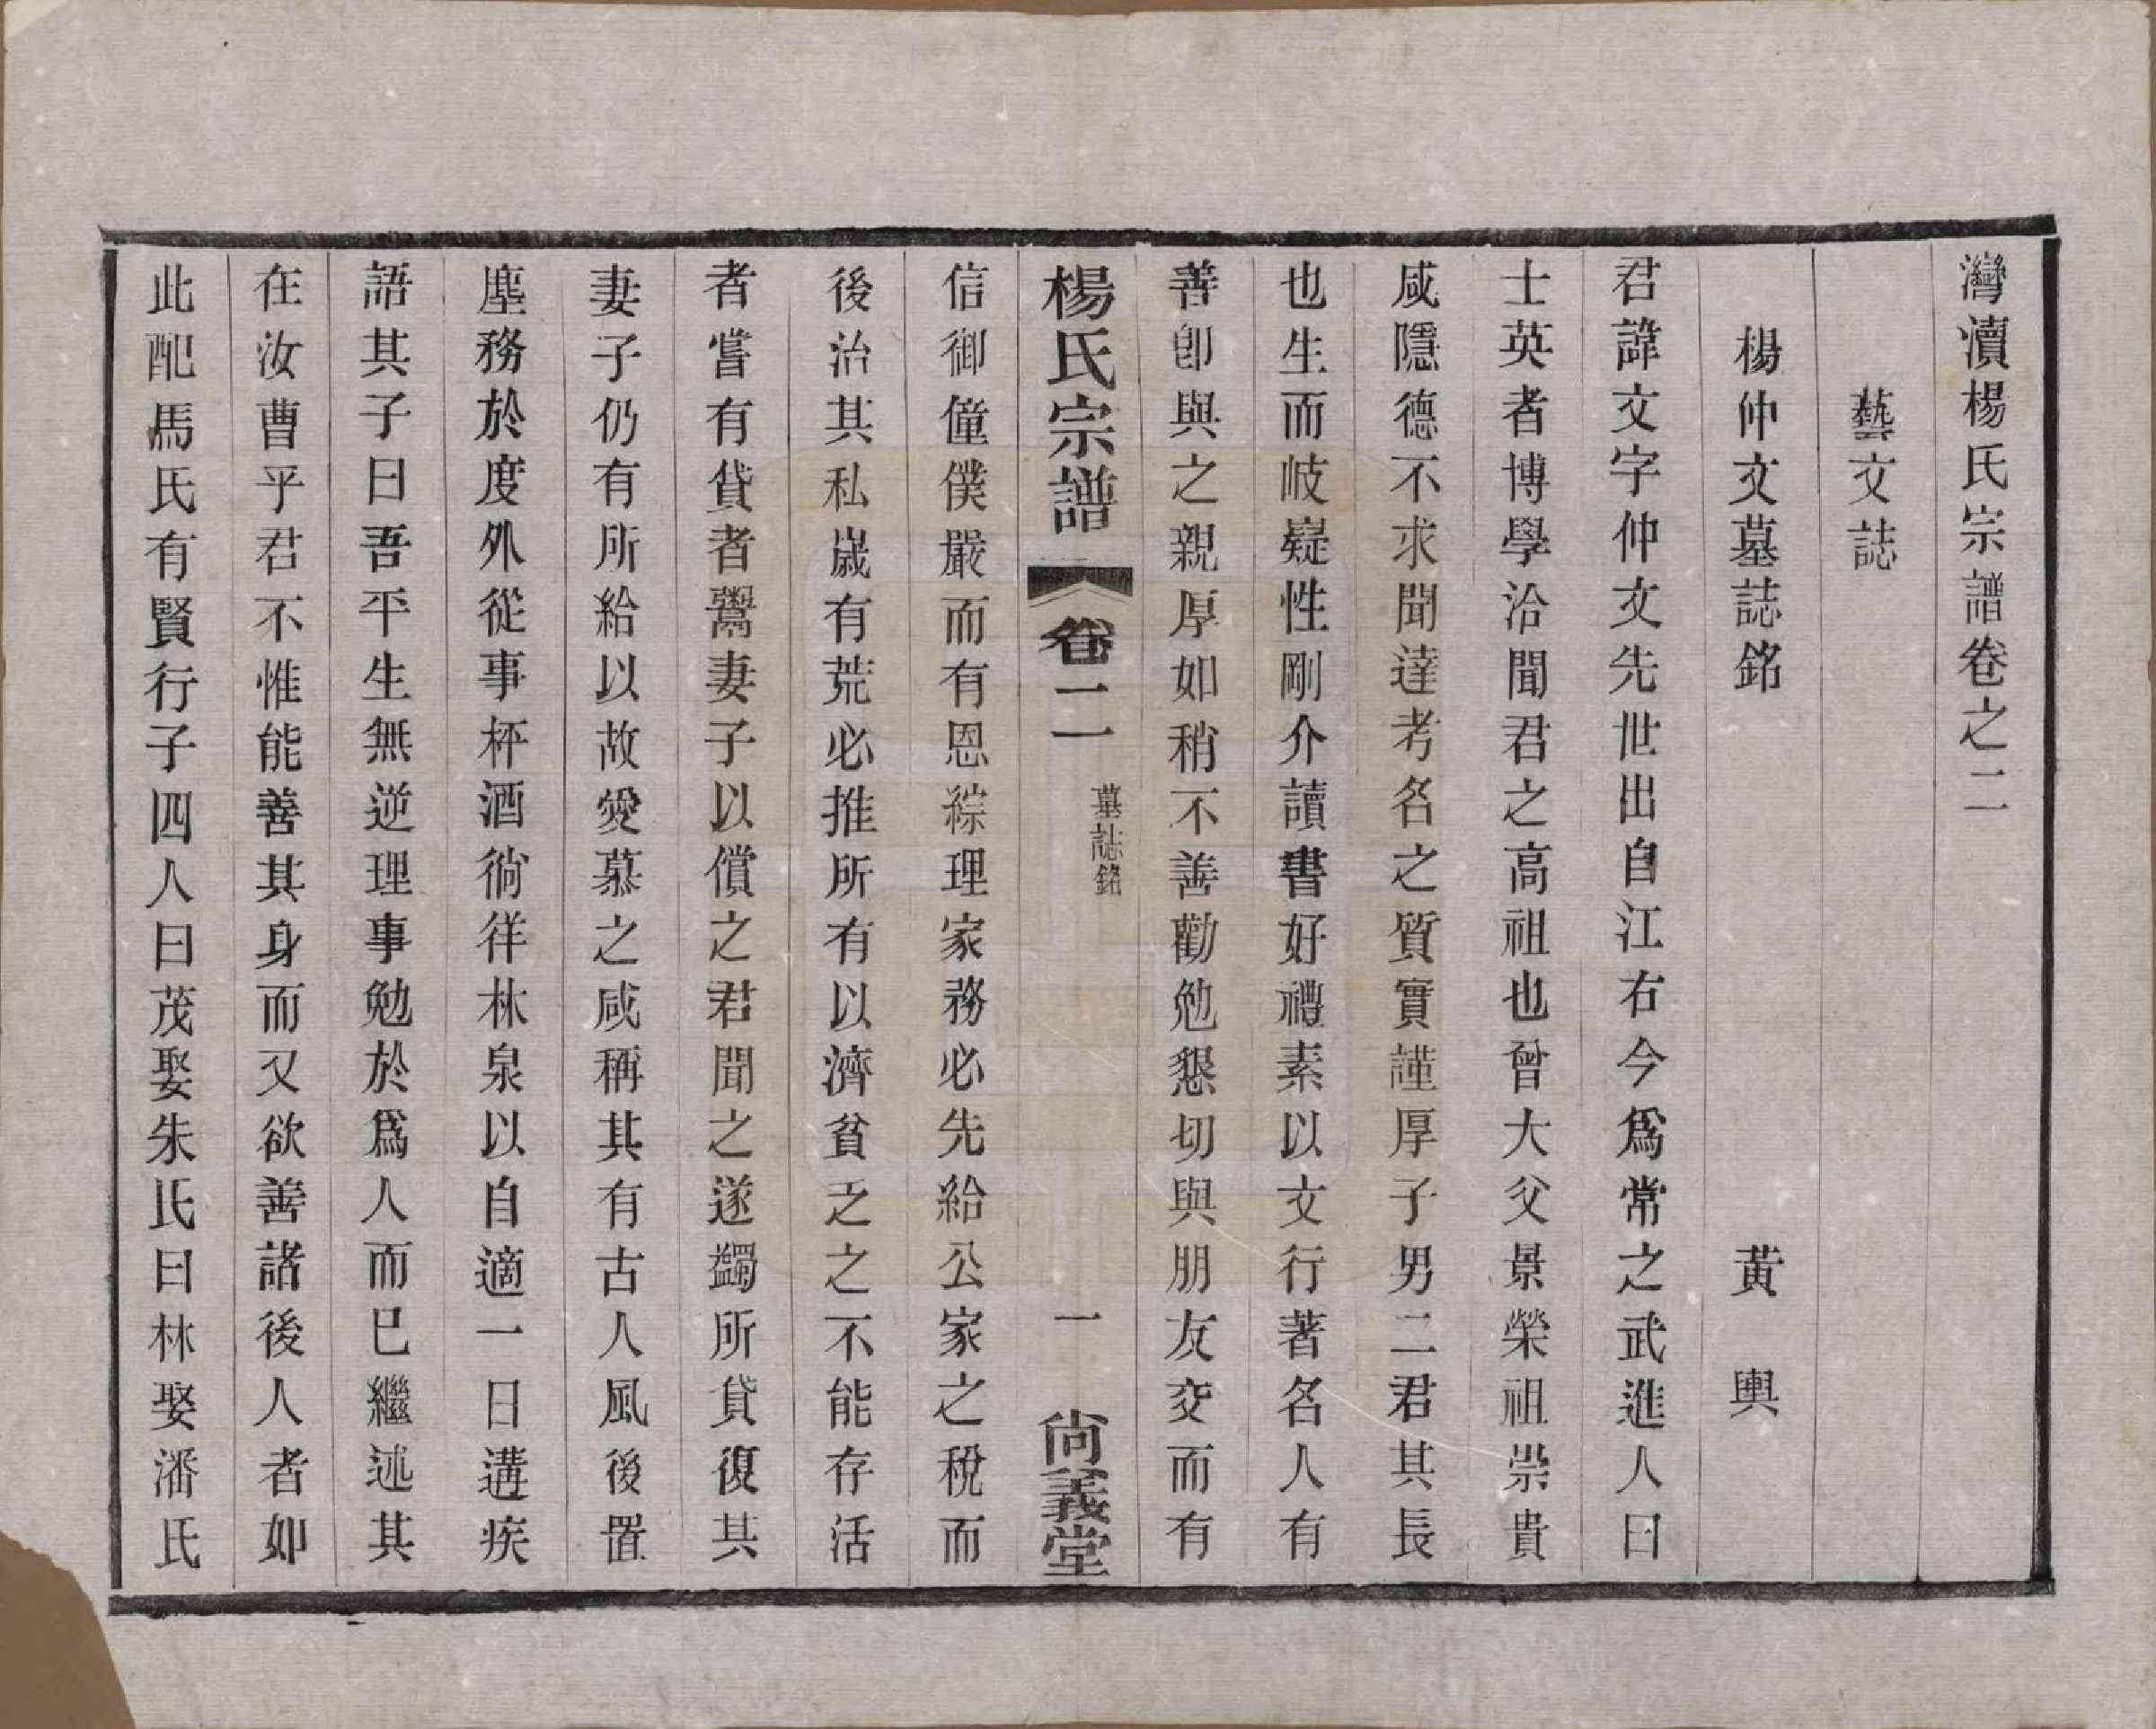 灣瀆楊氏宗譜卷之二
藝文誌
楊仲文墓誌銘 黃輿
君諱文字仲文先世出自江右今爲常之武進人曰
士英者博學洽聞君之高祖也曾大父景榮祖崇貴
咸隱德不求聞達考名之質實謹厚子男二君其長
也生而岐嶷性剛介讀書好禮素以文行著名人有
善卽與之親厚如稍不善勸勉懇切與朋友交而有
楊氏宗譜 卷二 墓誌銘 一 尙義堂
信御僮僕嚴而有恩綜理家務必先給公家之稅而
後治其私嵗有荒必推所有以濟貧乏之不能存活
者嘗有貸者鬻妻子以償之君聞之遂蠲所貸復其
妻子仍有所給以故愛慕之咸稱其有古人風後置
塵務於度外從事杯酒徜徉林泉以自適一日遘疾
語其子曰吾平生無逆理事勉於爲人而已繼述其
在汝曹乎君不惟能善其身而又欲善諸後人者如
此配馬氏有賢行子四人曰茂娶朱氏曰林娶潘氏